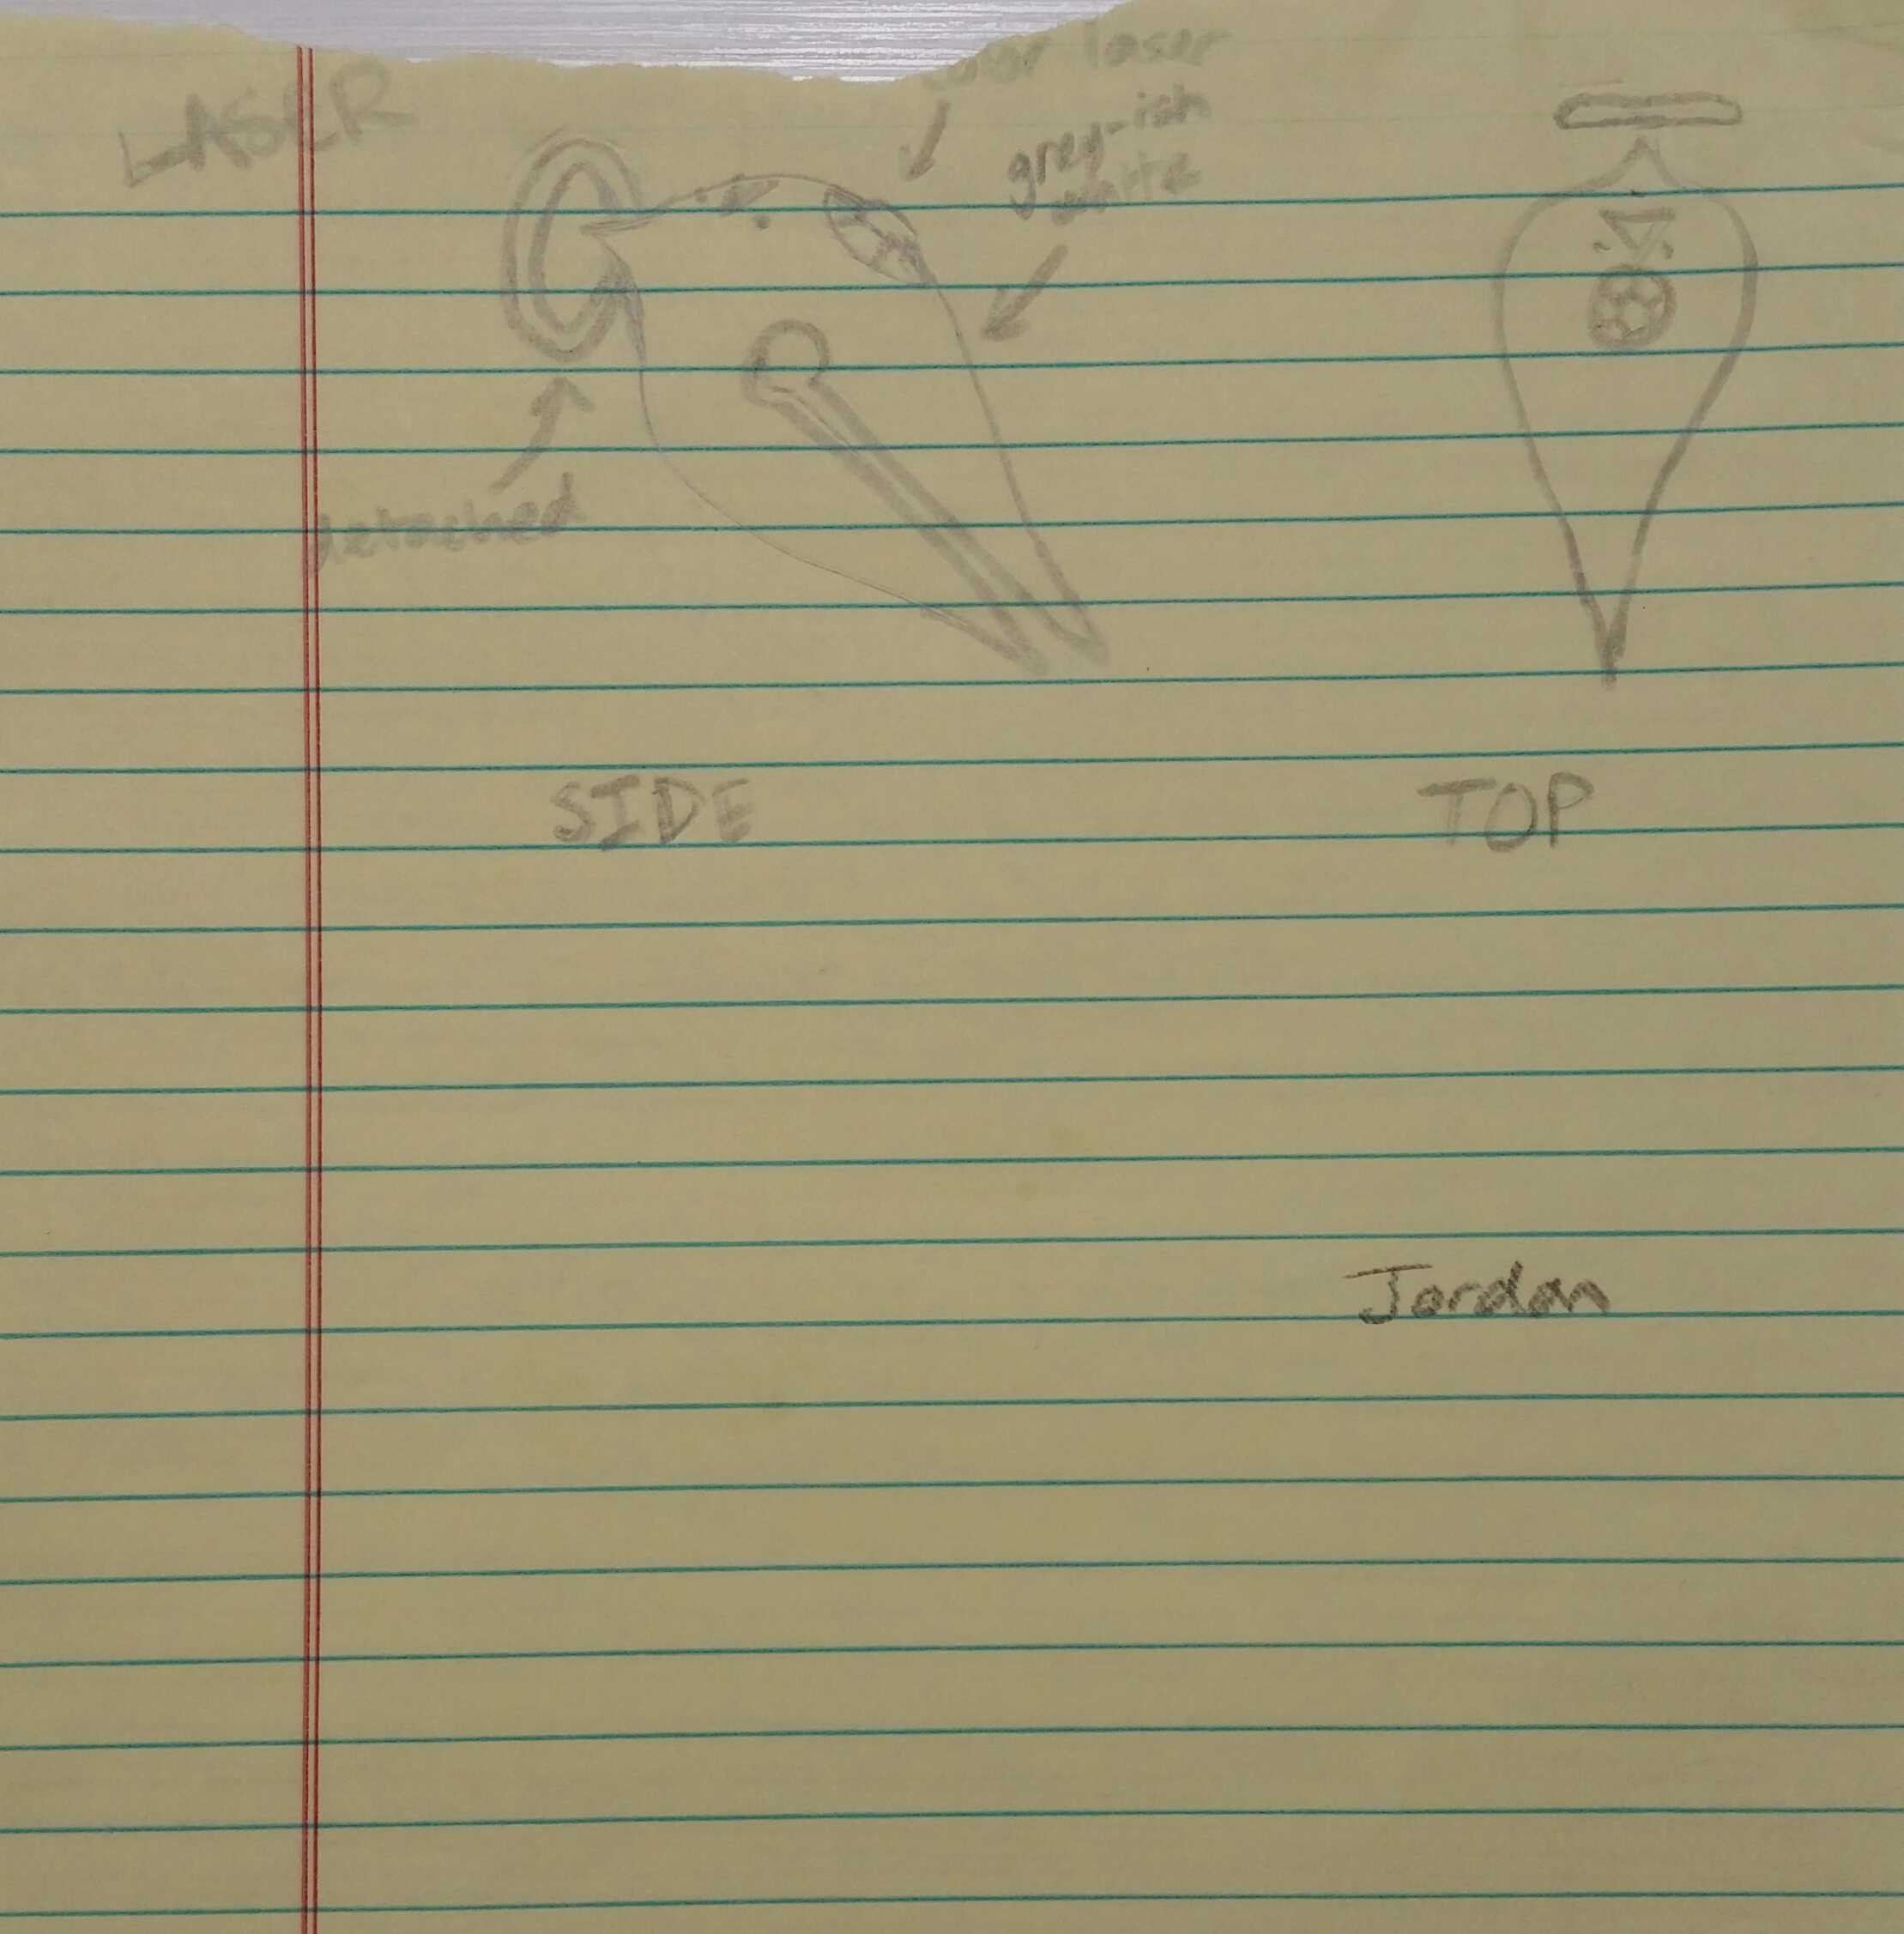 laser
LASER
grey-ish
white
detached
SIDE
TOP
Jordan